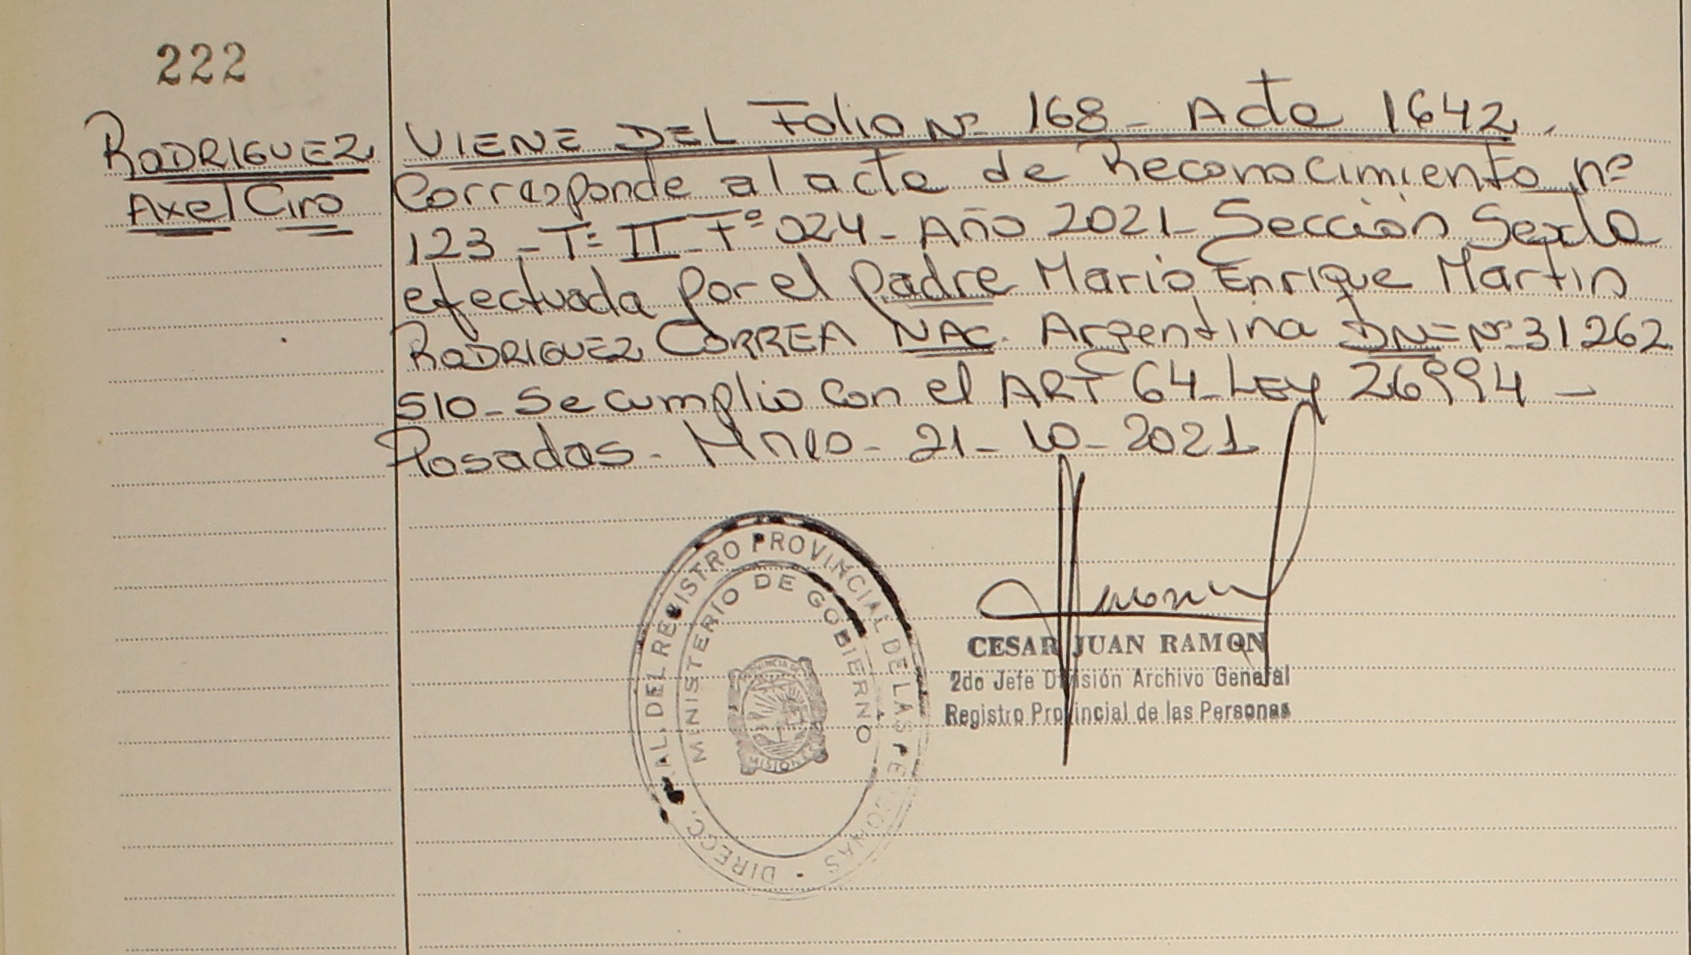 222
RODRIGUEZ
Axel Ciro
VIENE DEL Folio Nº 168 - Acta 1642.
Corresponde al acta de Reconocimiento nº
123 - Tº II - Fº 024 - Año 2021 - Sección Sexta
efectuada por el padre Mario Enrique Martin
RODRIGUEZ CORREA NAC. Argentina DNI Nº 31262
510 - Se cumplio con el ART 64 - LEY 26994 -
Posadas - Mnes - 21 - 10 - 2021
DIRECC. GRAL. DEL REGISTRO PROVINCIAL DE LAS PERSONAS
MINISTERIO DE GOBIERNO
PROVINCIA DE
MISIONES
CESAR JUAN RAMON
2do Jefe División Archivo General
Registro Provincial de las Personas